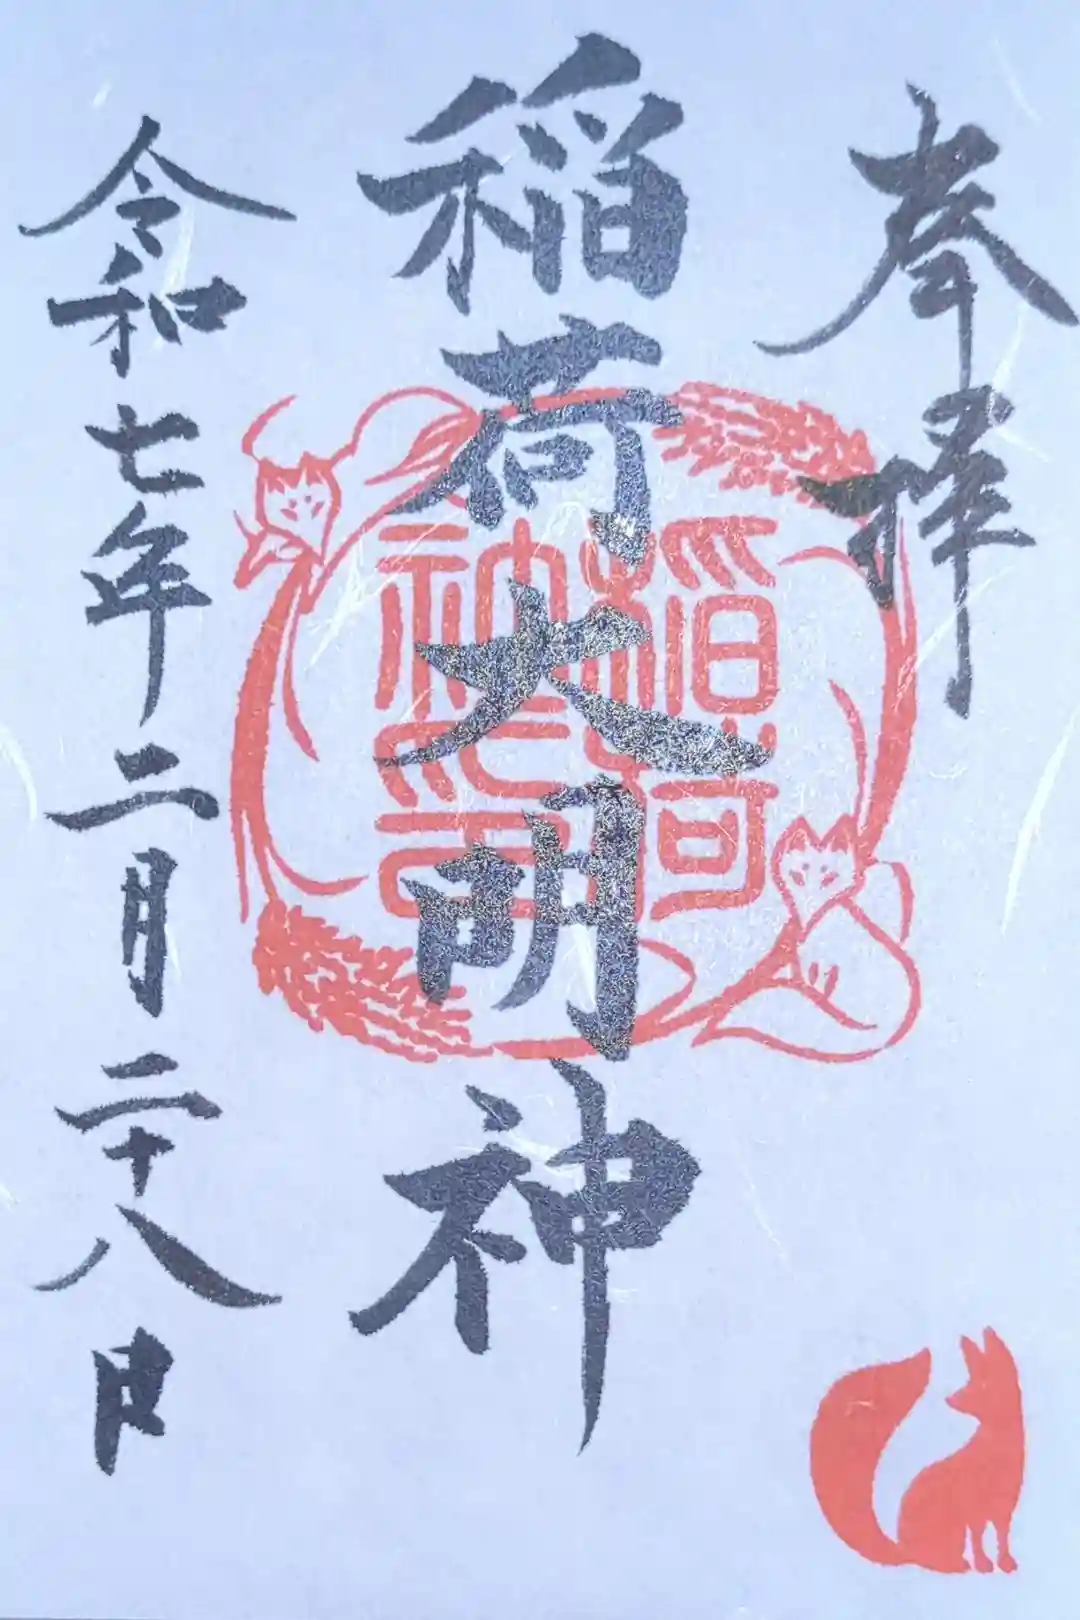 奉拝
稲荷大明神
令和七年二月二十八日